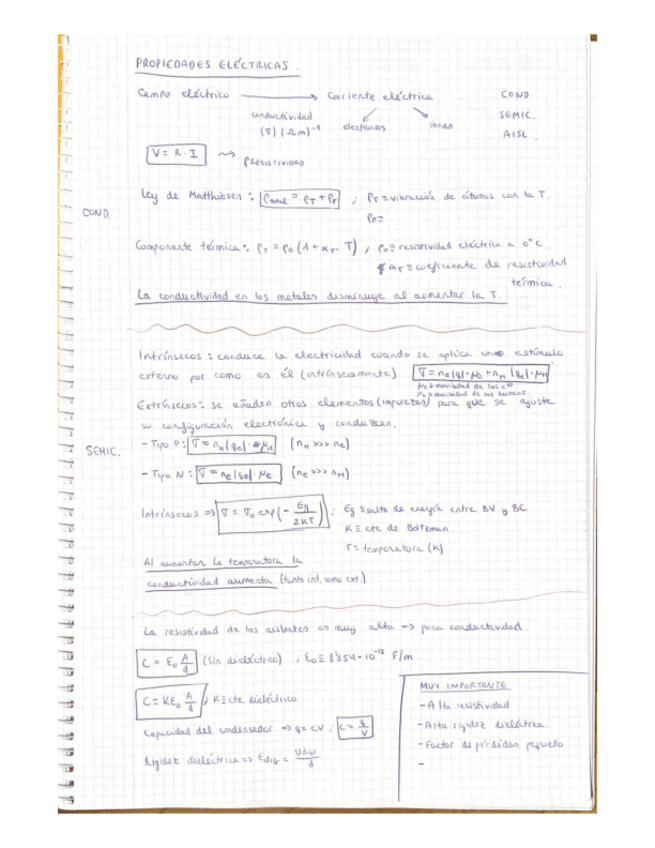 PROPIEDADES ELÉCTRICAS.
Campo eléctrico → Corriente eléctrica
COND
SEMIC.
AISL.
conductividad
(σ) (Ωm)⁻¹
electrones
iones
V = R · I ⇝ ρRESISTIVIDAD
COND.
Ley de Matthiesen: ρ = ρT + ρr ; ρT ≡ vibración de átomos con la T.
ρr ≡
Componente térmica: ρT = ρ0 (1 + αT · T) , ρ0 ≡ resistividad eléctrica a 0°C.
αT ≡ coeficiente de resistividad
térmica.
La conductividad en los metales disminuye al aumentar la T.
SEMIC.
Intrínsecos: conduce la electricidad cuando se aplica un estímulo
externo por como es él (intrínsecamente) σ = ne|q|·μe + nH|qe|·μH
μe ≡ movilidad de los e⁻
μH ≡ movilidad de los huecos.
Extrínsecos: se añaden otros elementos (impurezas) para que se ajuste
su configuración electrónica y conduzcan.
- Tipo P: σ ≈ nH|qe|·μH (nH >>> ne)
- Tipo N: σ ≈ ne|qe|·μe (ne >>> nH)
Intrínsecos => σ = σ0 exp(- Eg / 2KT) ; Eg ≡ salto de energía entre BV y BC
K ≡ cte de Boltzman.
T = temperatura (K)
Al aumentar la temperatura la
conductividad aumenta (tanto int. como ext.)
La resistividad de los aislantes es muy alta => poca conductividad.
C = ε0 A/d (Sin dieléctrico) ; ε0 ≡ 8'854·10⁻¹² F/m.
C = Kε0 A/d ; K ≡ cte dieléctrico
Capacidad del condensador => q = CV ; C = q/V
Rigidez dieléctrica => Edis = Vdis/d
MUY IMPORTANTE
- Alta resistividad
- Alta rigidez dieléctrica
- Factor de pérdidas pequeño
-